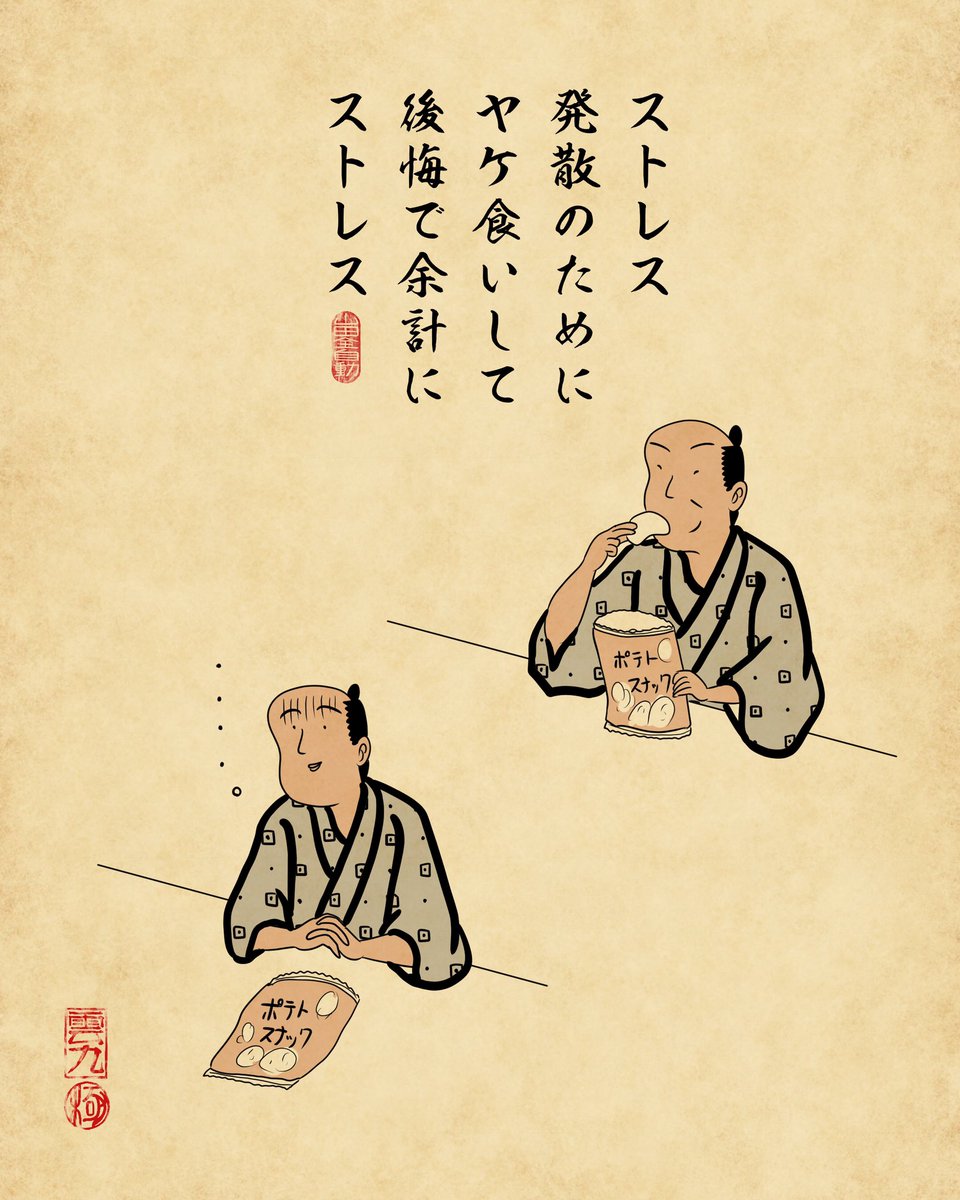 ストレス
発散のために
ヤケ食いして
後悔で余計に
ストレス
ポテト
スナック
ポテト
スナック